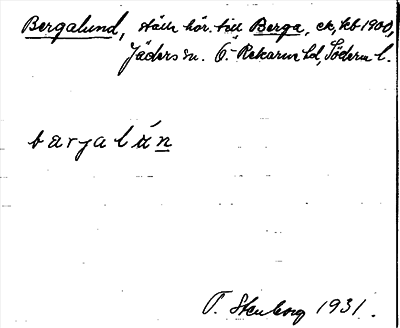 Bergalund, ställe hör. till Berga, ek, kb 1900,
Jäders sn. Ö. Rekarne hd, Söderm. l.
barjalún
T. Stenborg 1931.